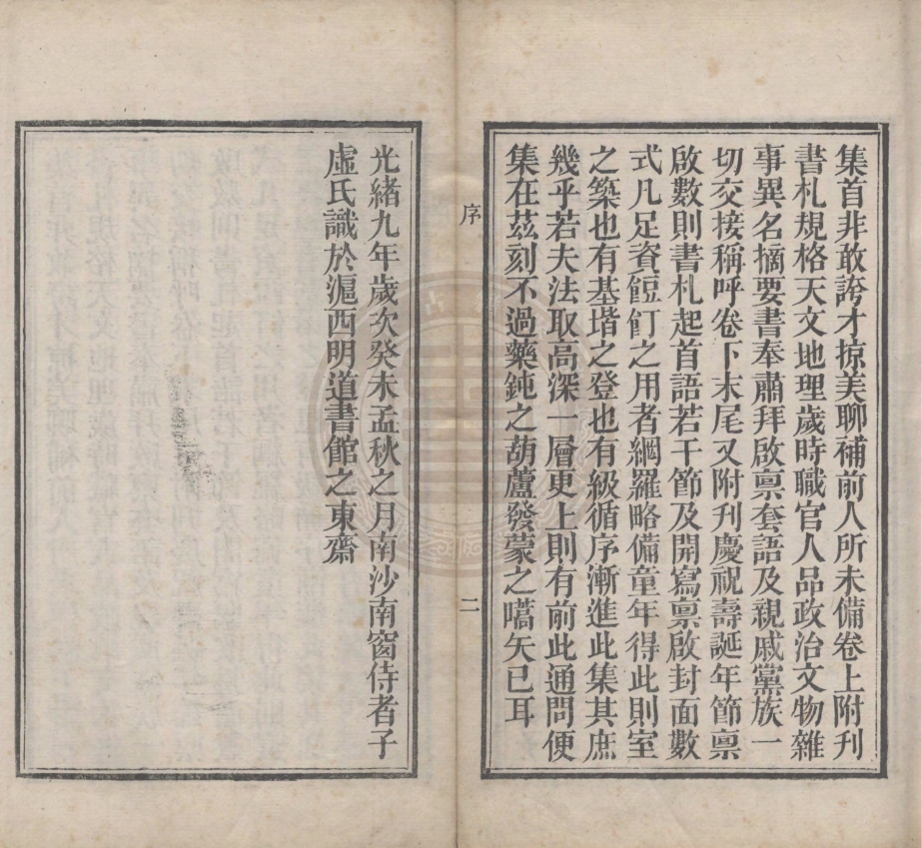 集首非敢誇才掠美聊補前人所未備卷上附刊
書札規格天文地理歲時職官人品政治文物雜
事異名摘要書奉肅拜啟稟套語及親戚黨族一
切交接稱呼卷下末尾又附刊慶祝壽誕年節稟
啟數則書札起首語若干節及開寫稟啟封面數
式凡足資餖飣之用者網羅略備童年得此則室
之築也有基堦之登也有級循序漸進此集其庶
幾乎若夫法取高深一層更上則有前此通問便
集在茲刻不過藥鈍之葫蘆發蒙之嚆矢已耳
序
二
光緒九年歲次癸未孟秋之月南沙南窗侍者子
虛氏識於滬西明道書館之東齋